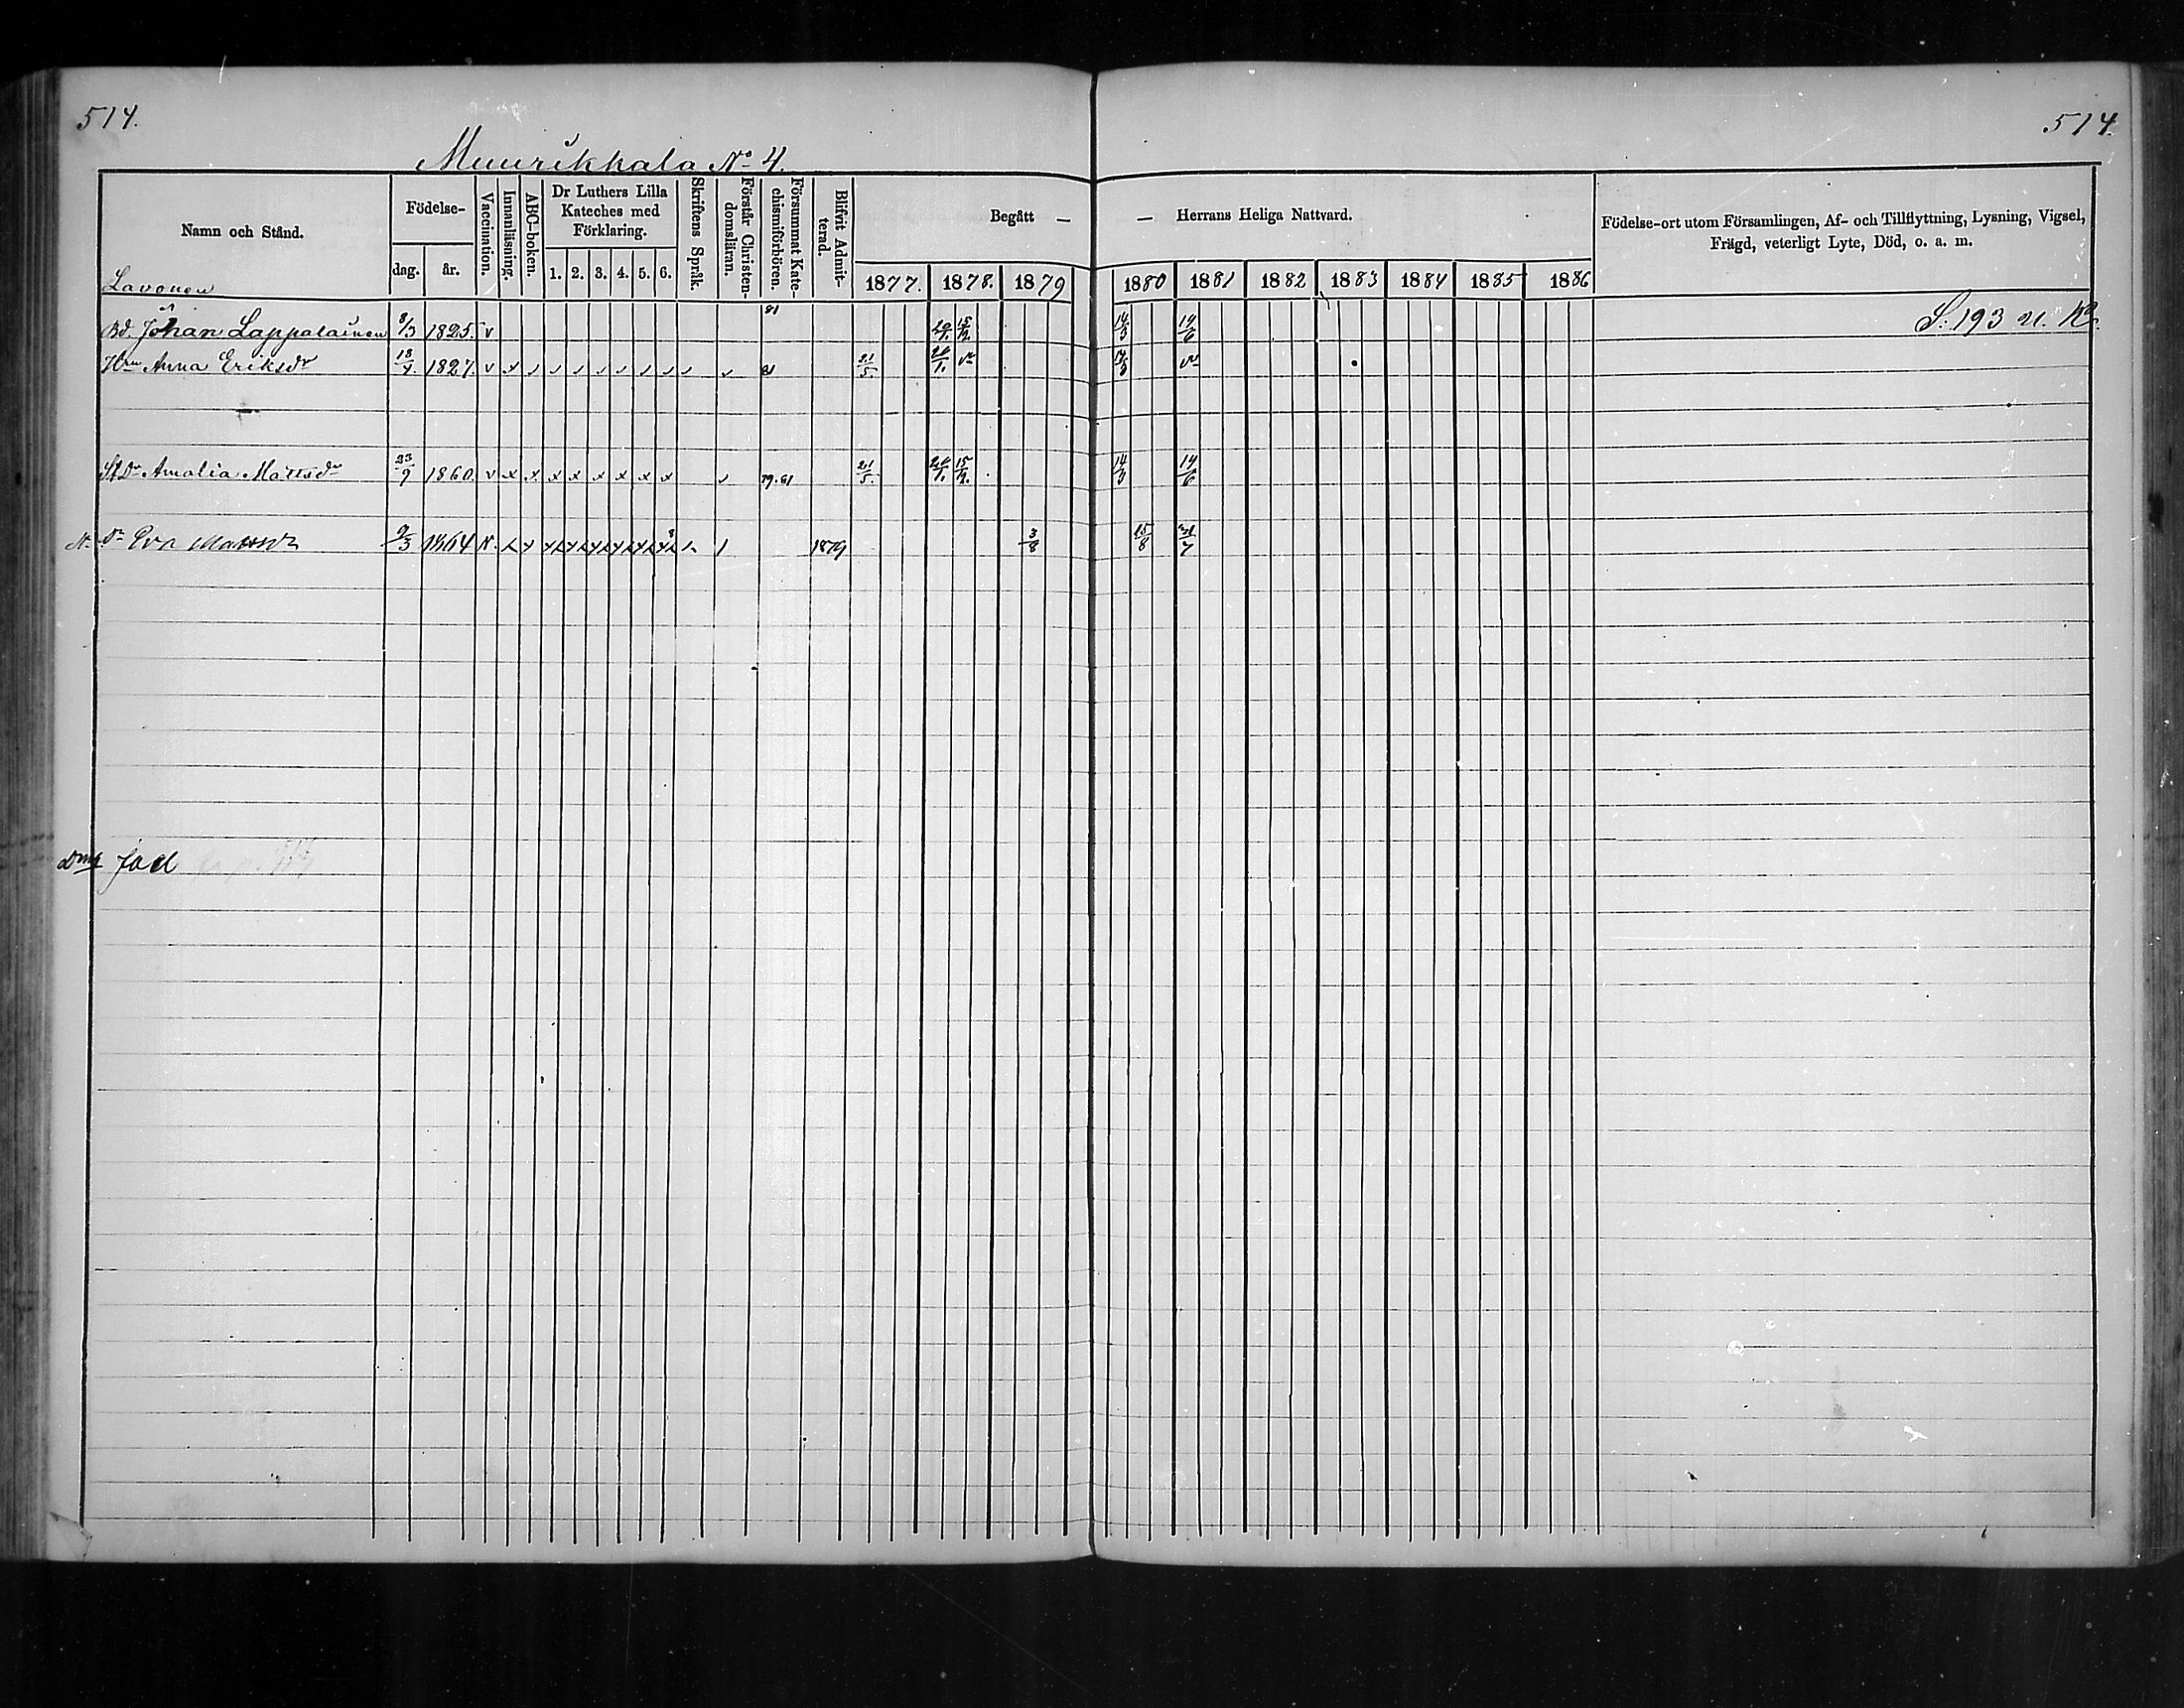 514.
514.
Muurikkala No 4.
Namn och Stånd.
Födelse-
dag.
år.
Vaccination.
Innanläsning.
ABC-boken.
Dr Luthers Lilla Kateches med Förklaring.
1. 2. 3. 4. 5. 6.
Skriftens Språk.
Förstår Christendomsläran.
Försummat Katechismiförhören.
Blifvit Admitterad.
Begått —
— Herrans Heliga Nattvard.
1877. 1878. 1879 1880 1881 1882 1883 1884 1885 1886
Födelse-ort utom Församlingen, Af- och Tillflyttning, Lysning, Vigsel,
Frägd, veterligt Lyte, Död, o. a. m.
Lavonen
Bd. Johan Lappalainen 8/3 1825. v 81 20/1. 15/12. 14/3 14/6 S: 193 u.
Hru Anna Eriksdr 18/7. 1827. v x 81 21/5. 20/1. 14/3
St Dr Amalia Mattsdr 23/9 1860. v x x x x x x x x 79.81 21/5. 20/1. 15/12. 14/3 14/6
Dr Eva Mattsdr 9/3 1864 1879 3/8 15/8 31/7